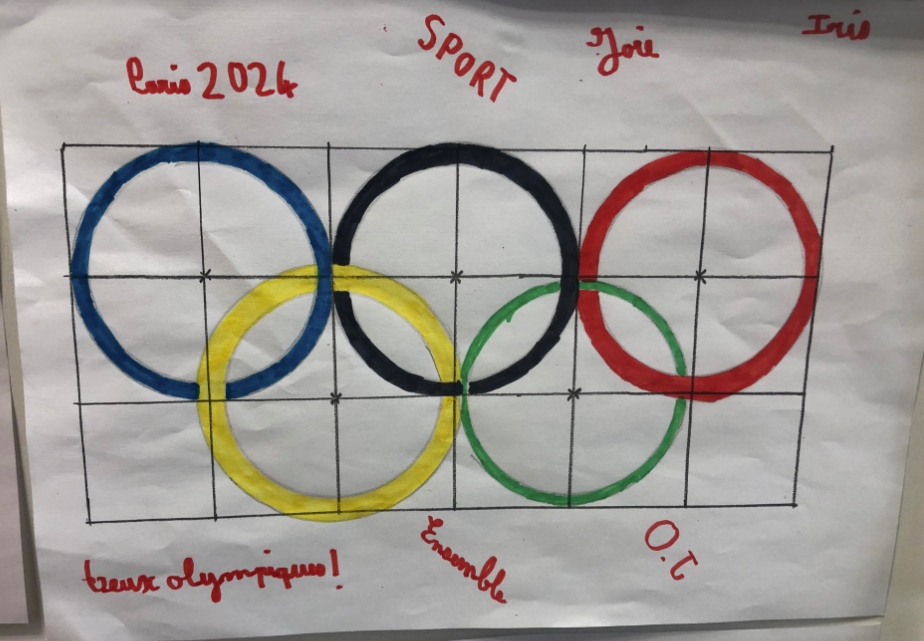 Paris 2024
SPORT
Joie
Iris
Jeux olympiques!
Ensemble